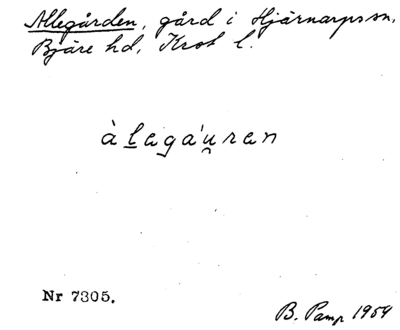 Allegården, gård i Hjärnarps sn,
Bjäre hd, Krist l.
àl̲agáu̯ran
Nr 7305.
B. Pamp 1954